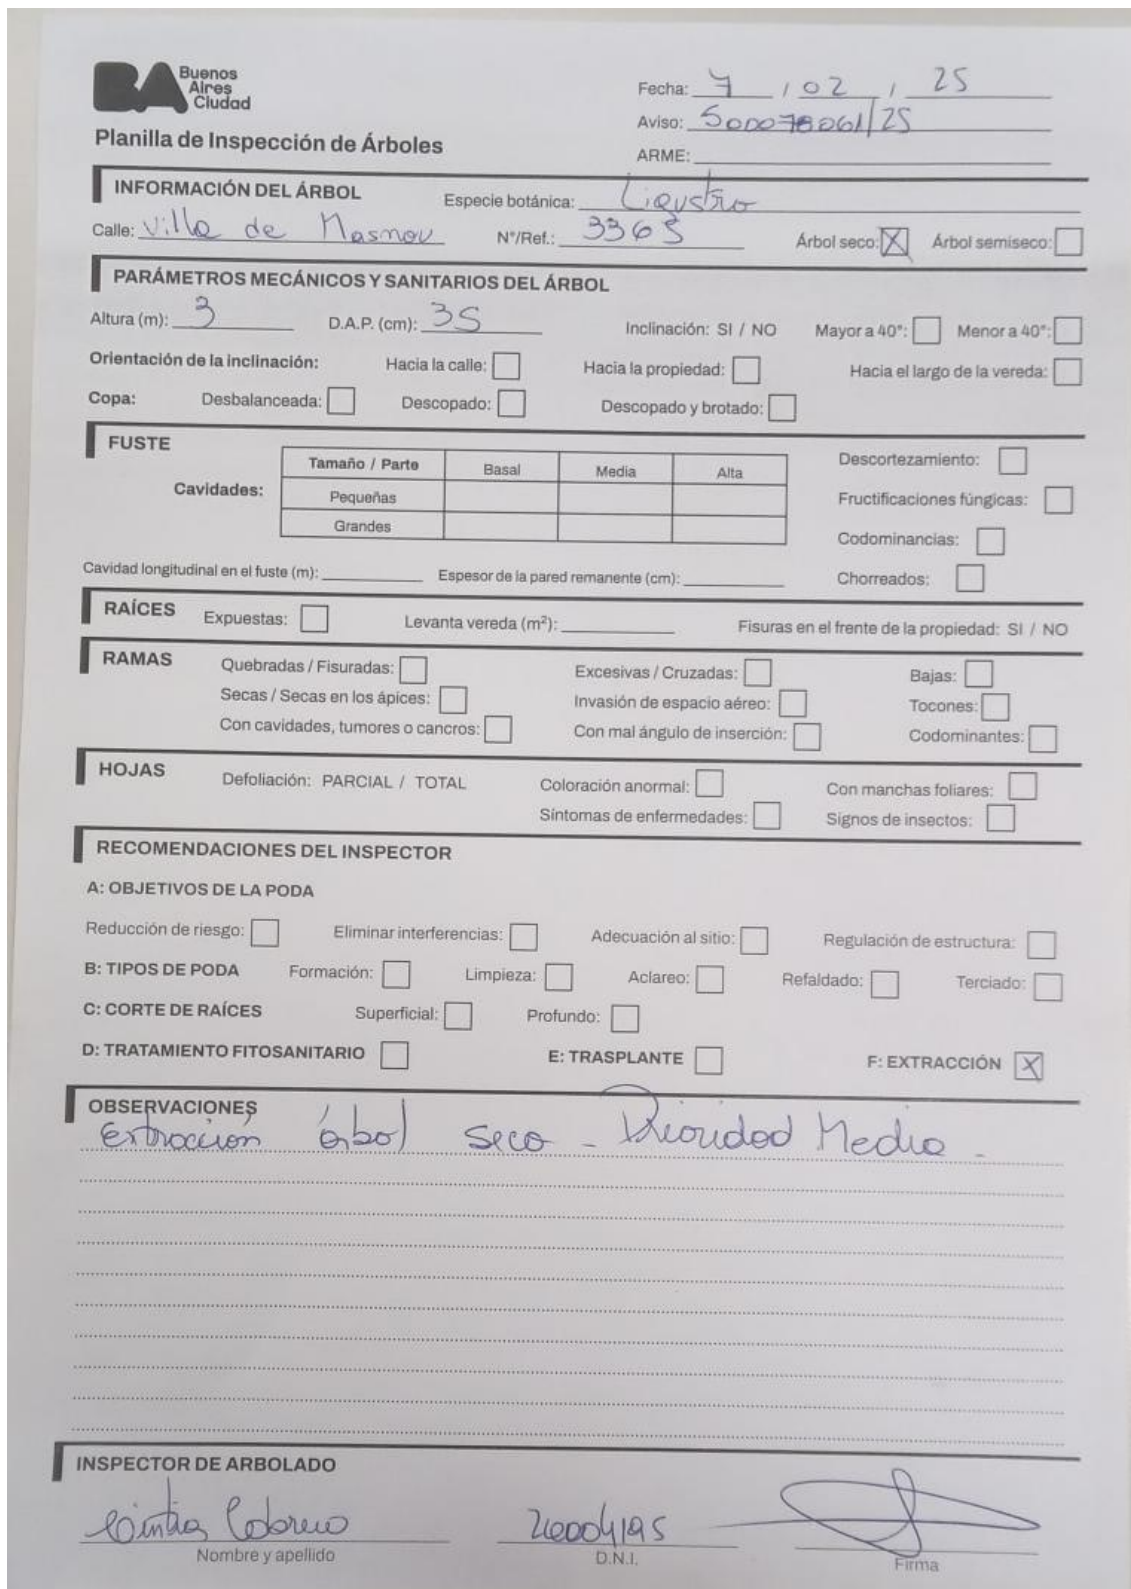 BA Buenos Aires Ciudad
Planilla de Inspección de Árboles
Fecha: 7 / 02 / 25
Aviso: 500078061/25
ARME:
INFORMACIÓN DEL ÁRBOL Especie botánica: Ligustro
Calle: Villa de Masnou N°/Ref.: 3365 Árbol seco: X Árbol semiseco:
PARÁMETROS MECÁNICOS Y SANITARIOS DEL ÁRBOL
Altura (m): 3 D.A.P. (cm): 35 Inclinación: SI / NO Mayor a 40°: Menor a 40°:
Orientación de la inclinación: Hacia la calle: Hacia la propiedad: Hacia el largo de la vereda:
Copa: Desbalanceada: Descopado: Descopado y brotado:
FUSTE
Cavidades:
Tamaño / Parte Basal Media Alta
Pequeñas
Grandes
Descortezamiento:
Fructificaciones fúngicas:
Codominancias:
Cavidad longitudinal en el fuste (m): Espesor de la pared remanente (cm): Chorreados:
RAÍCES Expuestas: Levanta vereda (m²): Fisuras en el frente de la propiedad: SI / NO
RAMAS Quebradas / Fisuradas: Excesivas / Cruzadas: Bajas:
Secas / Secas en los ápices: Invasión de espacio aéreo: Tocones:
Con cavidades, tumores o cancros: Con mal ángulo de inserción: Codominantes:
HOJAS Defoliación: PARCIAL / TOTAL Coloración anormal: Con manchas foliares:
Síntomas de enfermedades: Signos de insectos:
RECOMENDACIONES DEL INSPECTOR
A: OBJETIVOS DE LA PODA
Reducción de riesgo: Eliminar interferencias: Adecuación al sitio: Regulación de estructura:
B: TIPOS DE PODA Formación: Limpieza: Aclareo: Refaldado: Terciado:
C: CORTE DE RAÍCES Superficial: Profundo:
D: TRATAMIENTO FITOSANITARIO E: TRASPLANTE F: EXTRACCIÓN X
OBSERVACIONES
Extracción árbol seco - Prioridad Media -
INSPECTOR DE ARBOLADO
Cintia
Nombre y apellido D.N.I. Firma